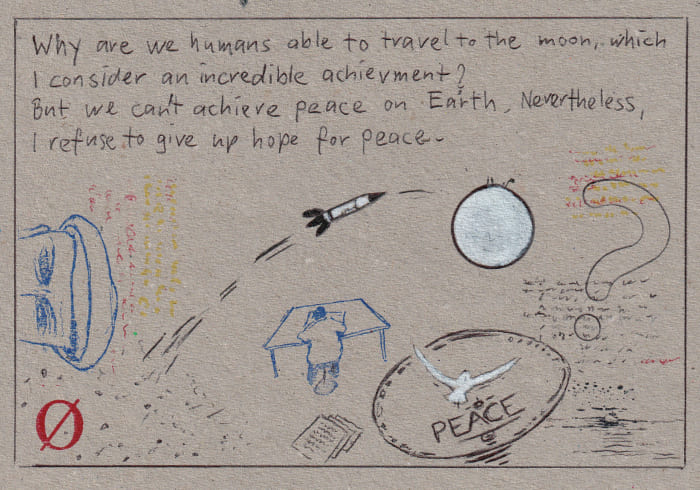 Why are we humans able to travel to the moon, which
I consider an incredible achievment?
But we can't achieve peace on Earth. Nevertheless,
I refuse to give up hope for peace.
PEACE
Ø